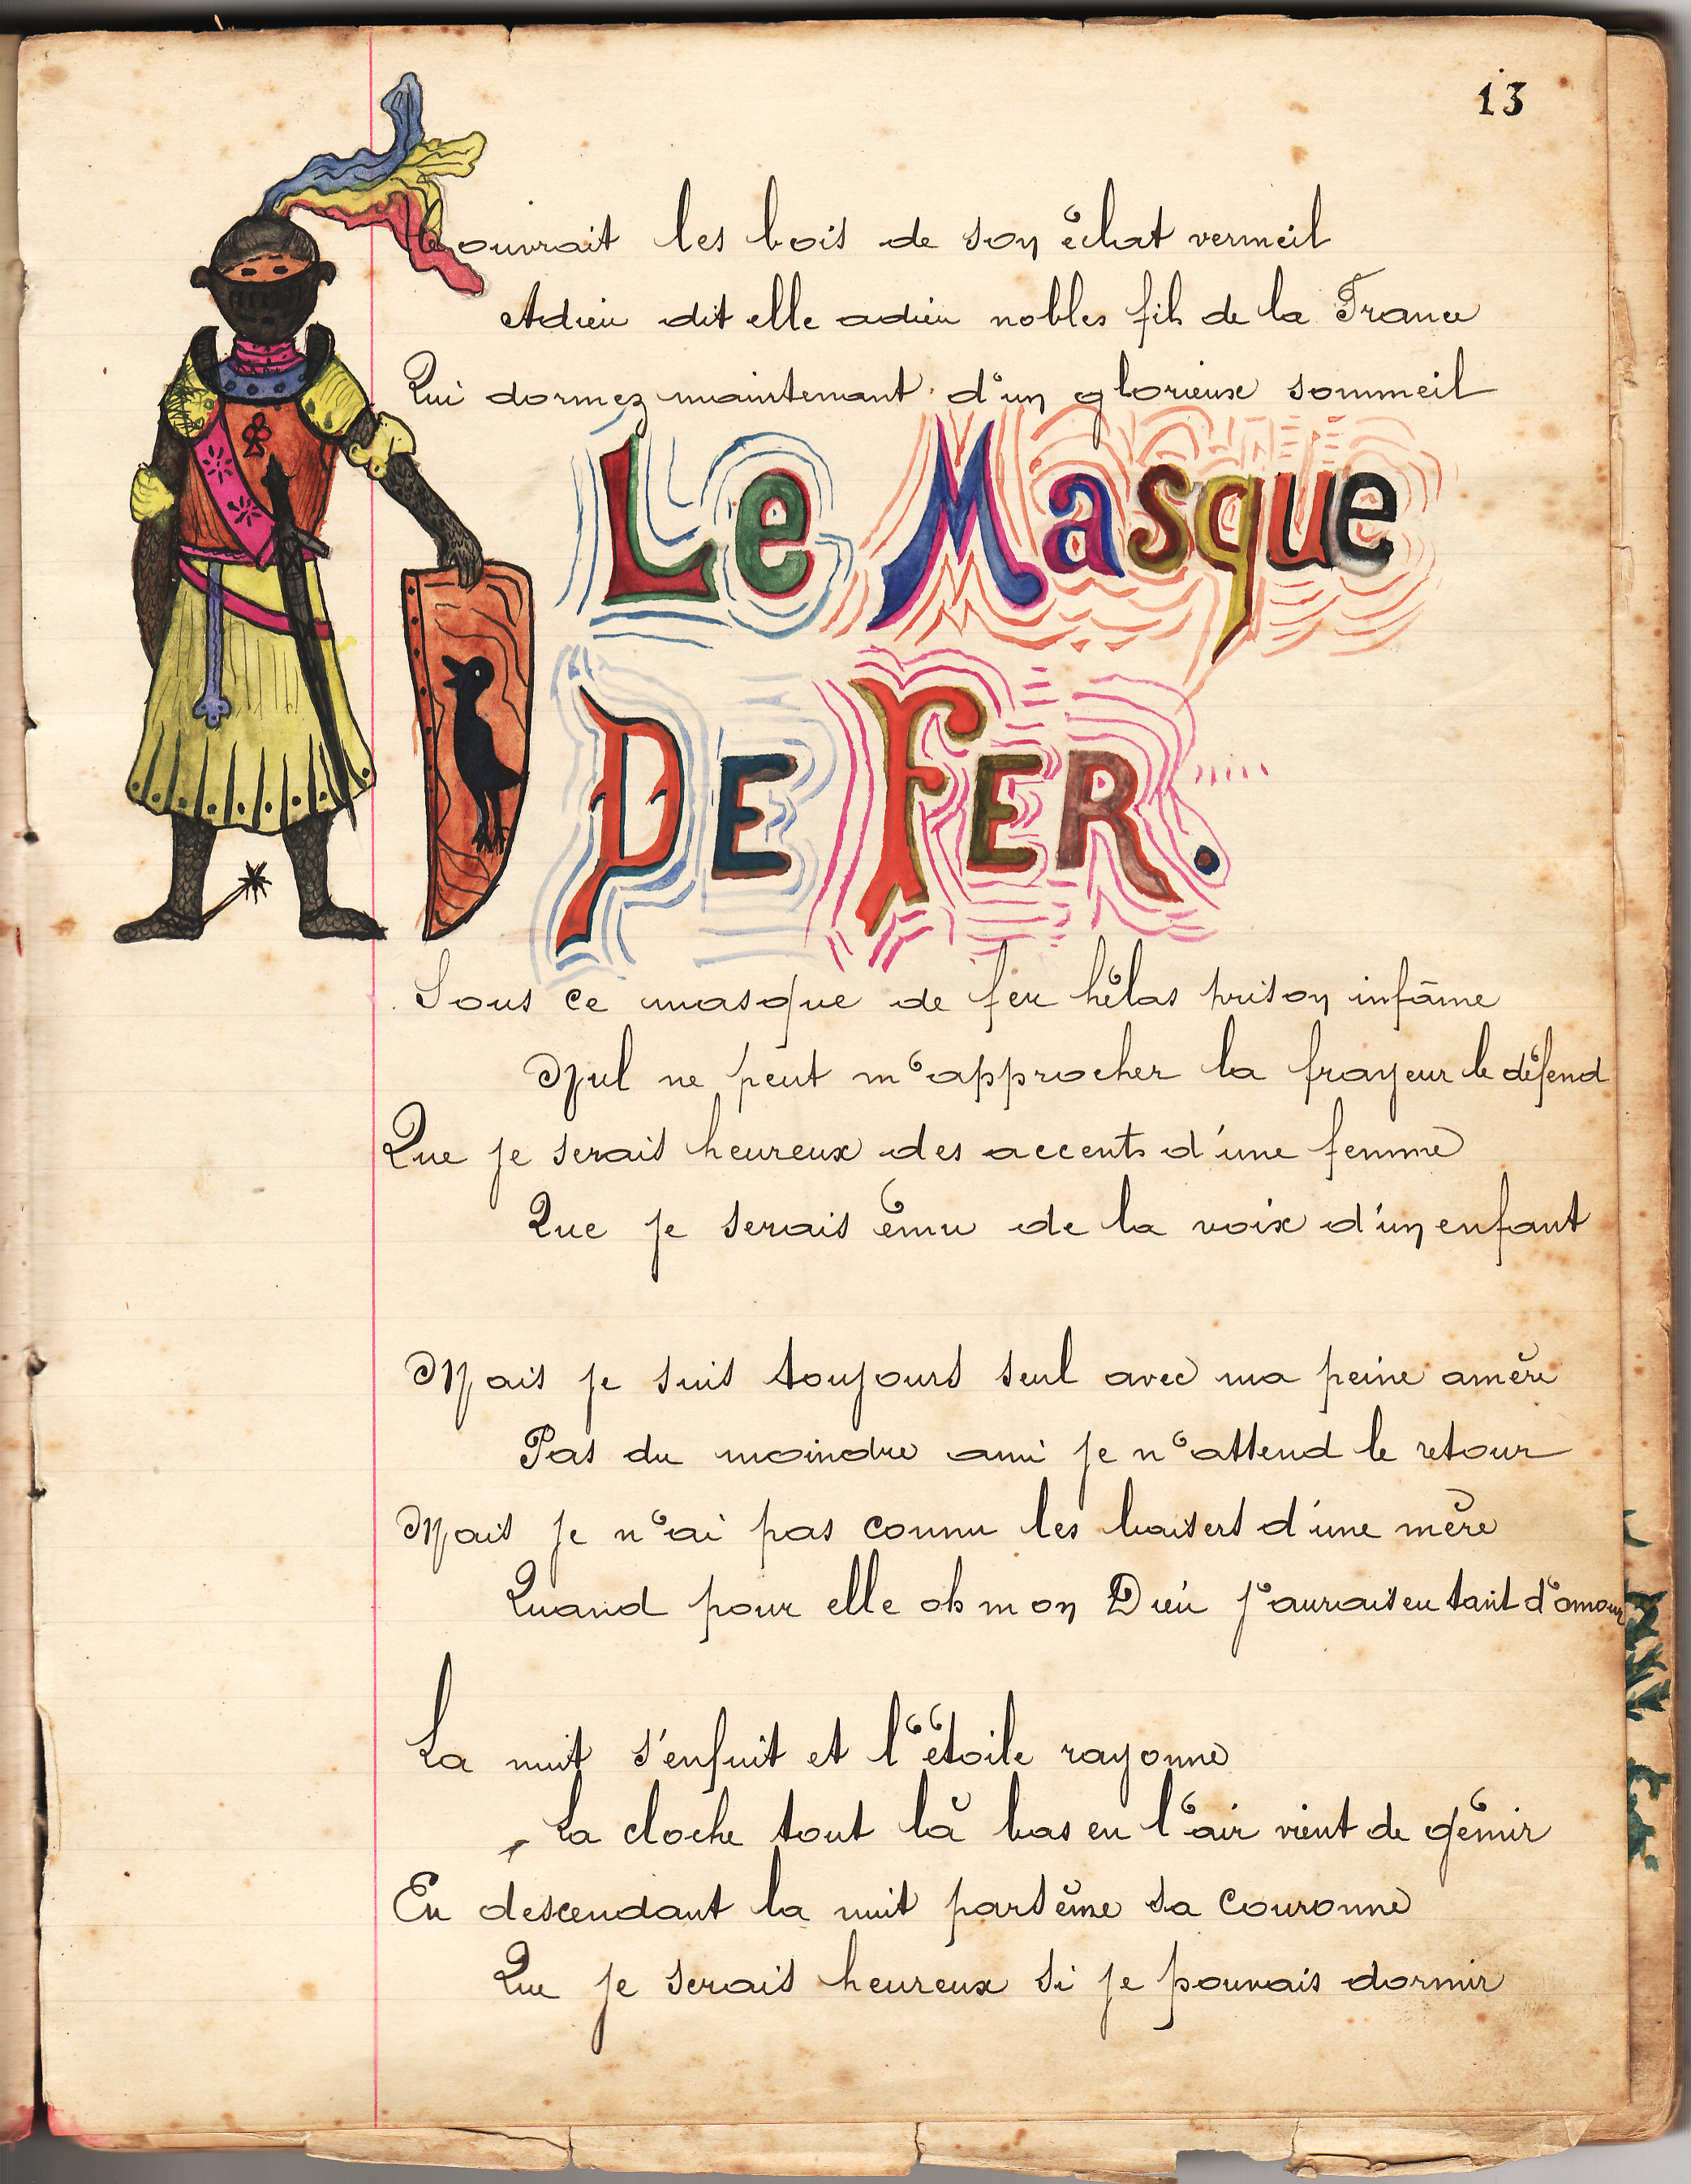 13
couvrait les bois de son éclat vermeil
Adieu dit elle adieu nobles fils de la France
Qui dormez maintenant d'un glorieux sommeil
Le Masque
DE FER.
Sous ce masque de fer hélas prison infâme
Nul ne peut m'approcher la frayeur le défend
Que je serais heureux des accents d'une femme
Que je serais ému de la voix d'un enfant
Mais je suis toujours seul avec ma peine amère
Pas du moindre ami je n'attend le retour
Mais je n'ai pas connu les baisers d'une mère
Quand pour elle oh mon Dieu j'aurais eu tant d'amour
La nuit s'enfuit et l'étoile rayonne
La cloche tout là bas en l'air vient de gémir
En descendant la nuit parsème sa couronne
Que je serais heureux si je pouvais dormir